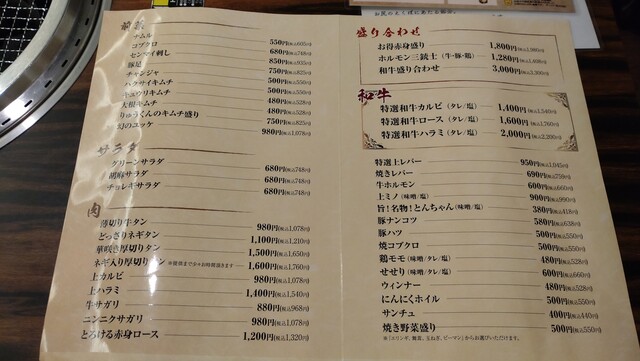 前菜
ナムル 550円(税込605円)
コブクロ 680円(税込748円)
センマイ刺し 850円(税込935円)
豚足 750円(税込825円)
チャンジャ 500円(税込550円)
キムチ 500円(税込550円)
キュウリキムチ 480円(税込528円)
大根キムチ 480円(税込528円)
りゅうくんのキムチ盛り 750円(税込825円)
幻のユッケ 980円(税込1,078円)
サラダ
グリーンサラダ 680円(税込748円)
胡麻サラダ 680円(税込748円)
チョレギサラダ 680円(税込748円)
肉
薄切り牛タン 980円(税込1,078円)
どっさりネギタン 1,100円(税込1,210円)
華咲き厚切りタン 1,500円(税込1,650円)
ネギ入り厚切りタン 1,600円(税込1,760円)
上カルビ 980円(税込1,078円)
上ハラミ 1,400円(税込1,540円)
牛サガリ 880円(税込968円)
ニンニクサガリ 980円(税込1,078円)
とろける赤身ロース 1,200円(税込1,320円)
盛り合わせ
お得赤身盛り 1,800円(税込1,980円)
ホルモン三銃士(牛・豚・鶏) 1,280円(税込1,408円)
和牛盛り合わせ 3,000円(税込3,300円)
和牛
特選和牛カルビ(タレ/塩) 1,400円(税込1,540円)
特選和牛ロース(タレ/塩) 1,600円(税込1,760円)
特選和牛ハラミ(タレ/塩) 2,000円(税込2,200円)
特選上レバー 950円(税込1,045円)
焼きレバー 690円(税込759円)
牛ホルモン 600円(税込660円)
上ミノ(味噌/塩) 900円(税込990円)
旨!名物!とんちゃん(味噌/塩) 380円(税込418円)
豚ナンコツ 580円(税込638円)
豚ハツ 500円(税込550円)
焼コブクロ 500円(税込550円)
鶏モモ(味噌/タレ/塩) 480円(税込528円)
せせり(味噌/タレ/塩) 600円(税込660円)
ウィンナー 480円(税込528円)
にんにくホイル 500円(税込550円)
サンチュ 400円(税込440円)
焼き野菜盛り 500円(税込550円)
※(エリンギ、舞茸、玉ねぎ、ピーマン)からお選びいただけます。